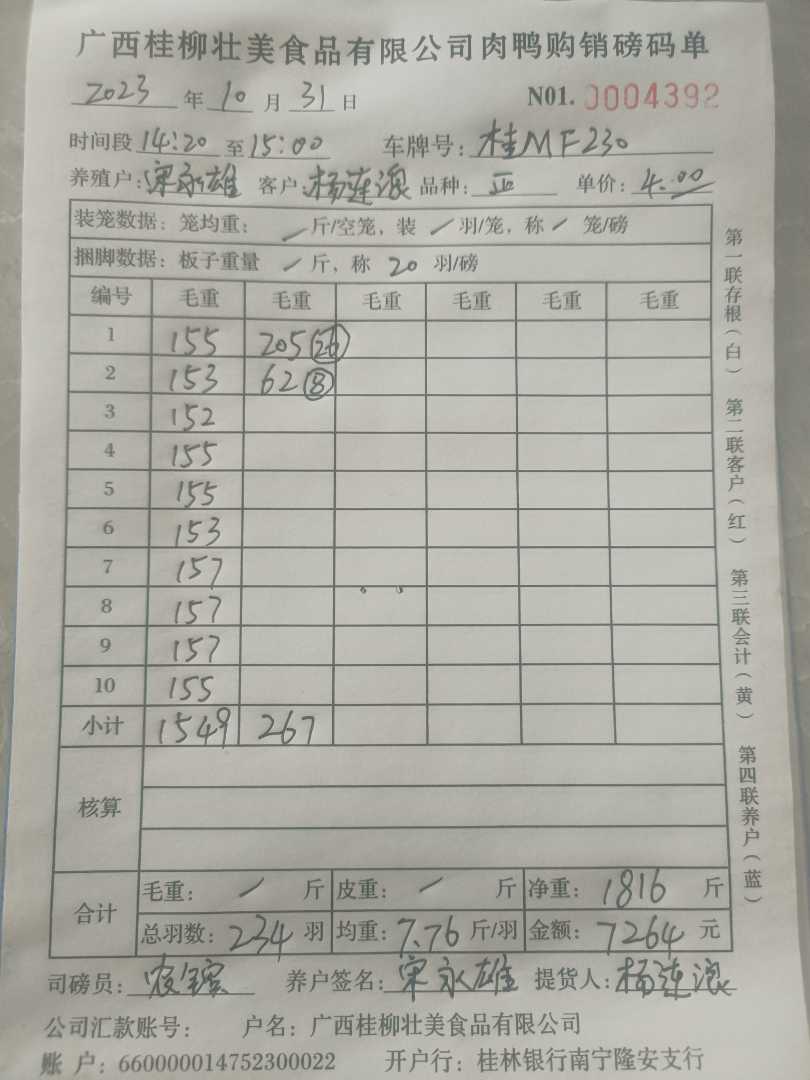 广西桂柳壮美食品有限公司肉鸭购销磅码单
2023 年 10 月 31 日 N01. 0004392
时间段 14:20 至 15:00 车牌号: 桂MF230
养殖户: 宋永雄 客户: 杨连浪 品种: 正 单价: 4.00
装笼数据: 笼均重: / 斤/空笼, 装 / 羽/笼, 称 / 笼/磅
捆脚数据: 板子重量 / 斤, 称 20 羽/磅
编号 毛重 毛重 毛重 毛重 毛重 毛重
1 155 205 (26)
2 153 62 (8)
3 152
4 155
5 155
6 153
7 157
8 157
9 157
10 155
小计 1549 267
核算
合计 毛重: / 斤 皮重: / 斤 净重: 1816 斤
总羽数: 234 羽 均重: 7.76 斤/羽 金额: 7264 元
司磅员: 养户签名: 宋永雄 提货人: 杨连浪
公司汇款账号: 户名: 广西桂柳壮美食品有限公司
账 户: 660000014752300022 开户行: 桂林银行南宁隆安支行
第一联存根(白) 第二联客户(红) 第三联会计(黄) 第四联养户(蓝)